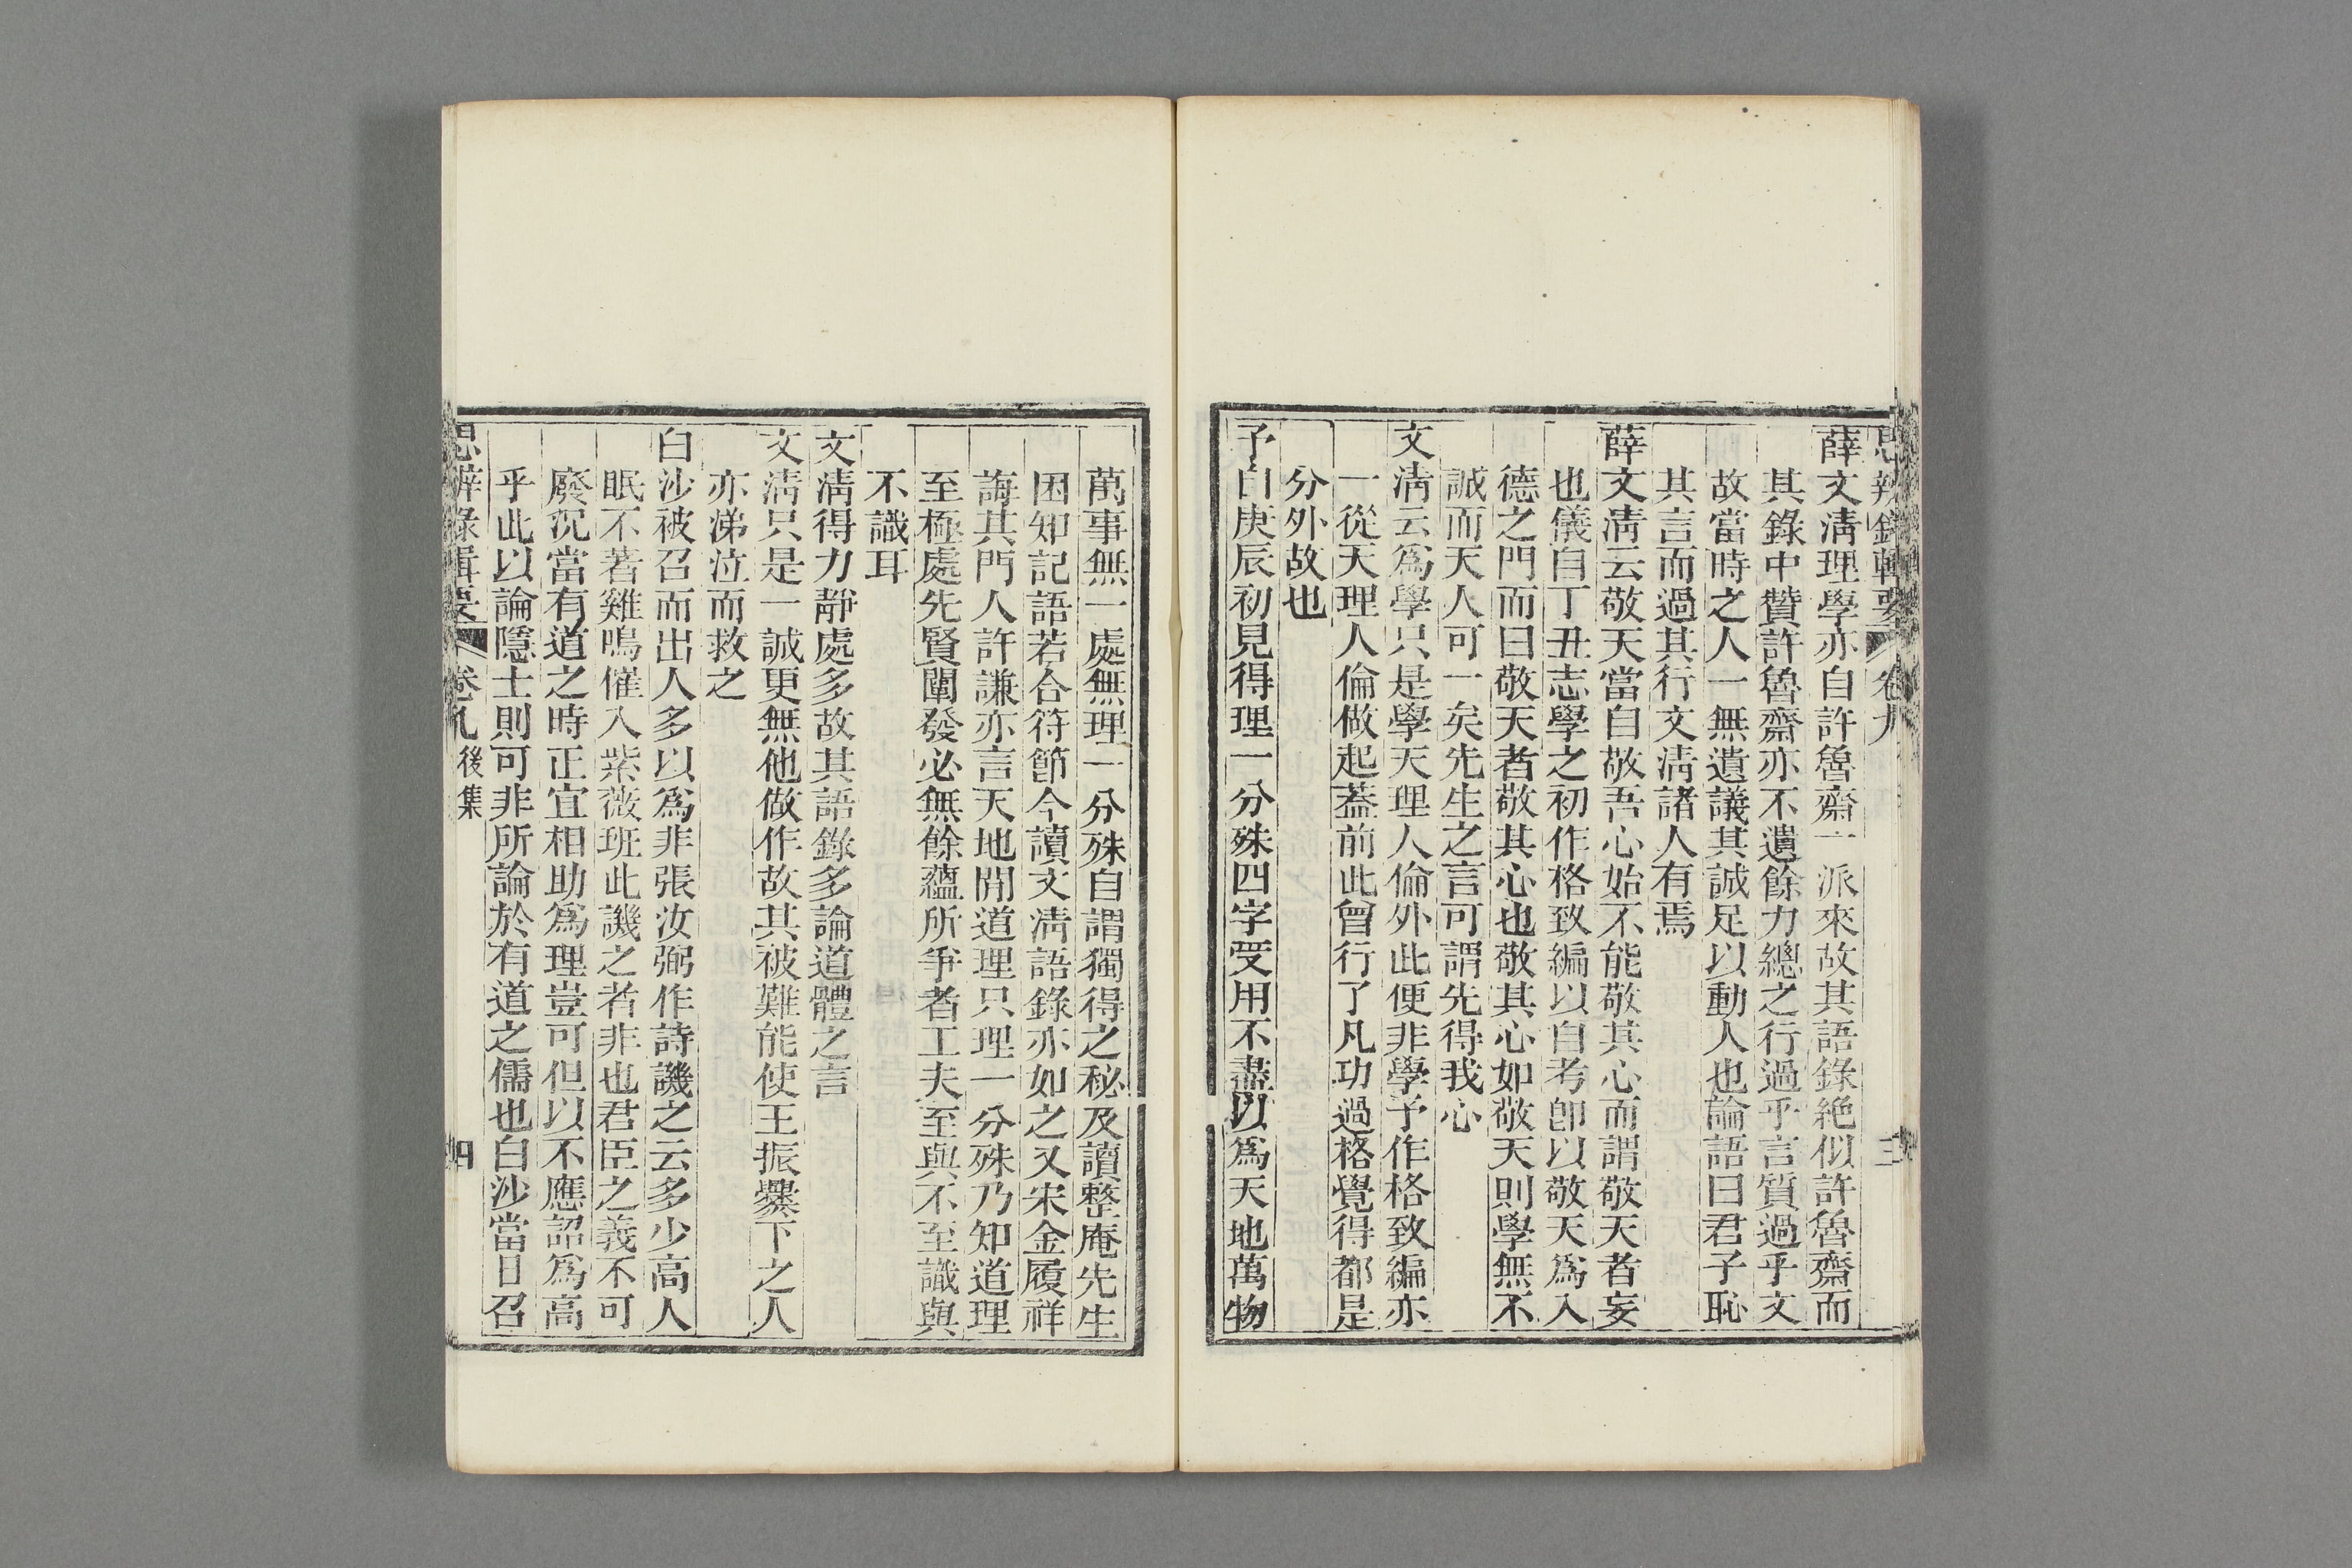 思辨錄輯要 卷九 三
薛文淸理學亦自許魯齋一派來故其語錄絶似許魯齋而
其錄中贊許魯齋亦不遺餘力總之行過乎言質過乎文
故當時之人一無遺議其誠足以動人也論語曰君子恥
其言而過其行文淸諸人有焉
薛文淸云敬天當自敬吾心始不能敬其心而謂敬天者妄
也儀自丁丑志學之初作格致編以自考卽以敬天爲入
德之門而曰敬天者敬其心也敬其心如敬天則學無不
誠而天人可一矣先生之言可謂先得我心
文淸云爲學只是學天理人倫外此便非學予作格致編亦
一從天理人倫做起蓋前此曾行了凡功過格覺得都是
分外故也
予自庚辰初見得理一分殊四字受用不盡以爲天地萬物
萬事無一處無理一分殊自謂獨得之秘及讀整庵先生
困知記語若合符節今讀文淸語錄亦如之又宋金履祥
誨其門人許謙亦言天地間道理只理一分殊乃知道理
至極處先賢闡發必無餘蘊所爭者工夫至與不至識與
不識耳
文淸得力靜處多故其語錄多論道體之言
文淸只是一誠更無他做作故其被難能使王振爨下之人
亦涕泣而救之
白沙被召而出人多以爲非張汝弼作詩譏之云多少高人
眠不著雞鳴催入紫薇班此譏之者非也君臣之義不可
廢況當有道之時正宜相助爲理豈可但以不應詔爲高
乎此以論隱士則可非所論於有道之儒也白沙當日召
思辨錄輯要 卷九 後集 四